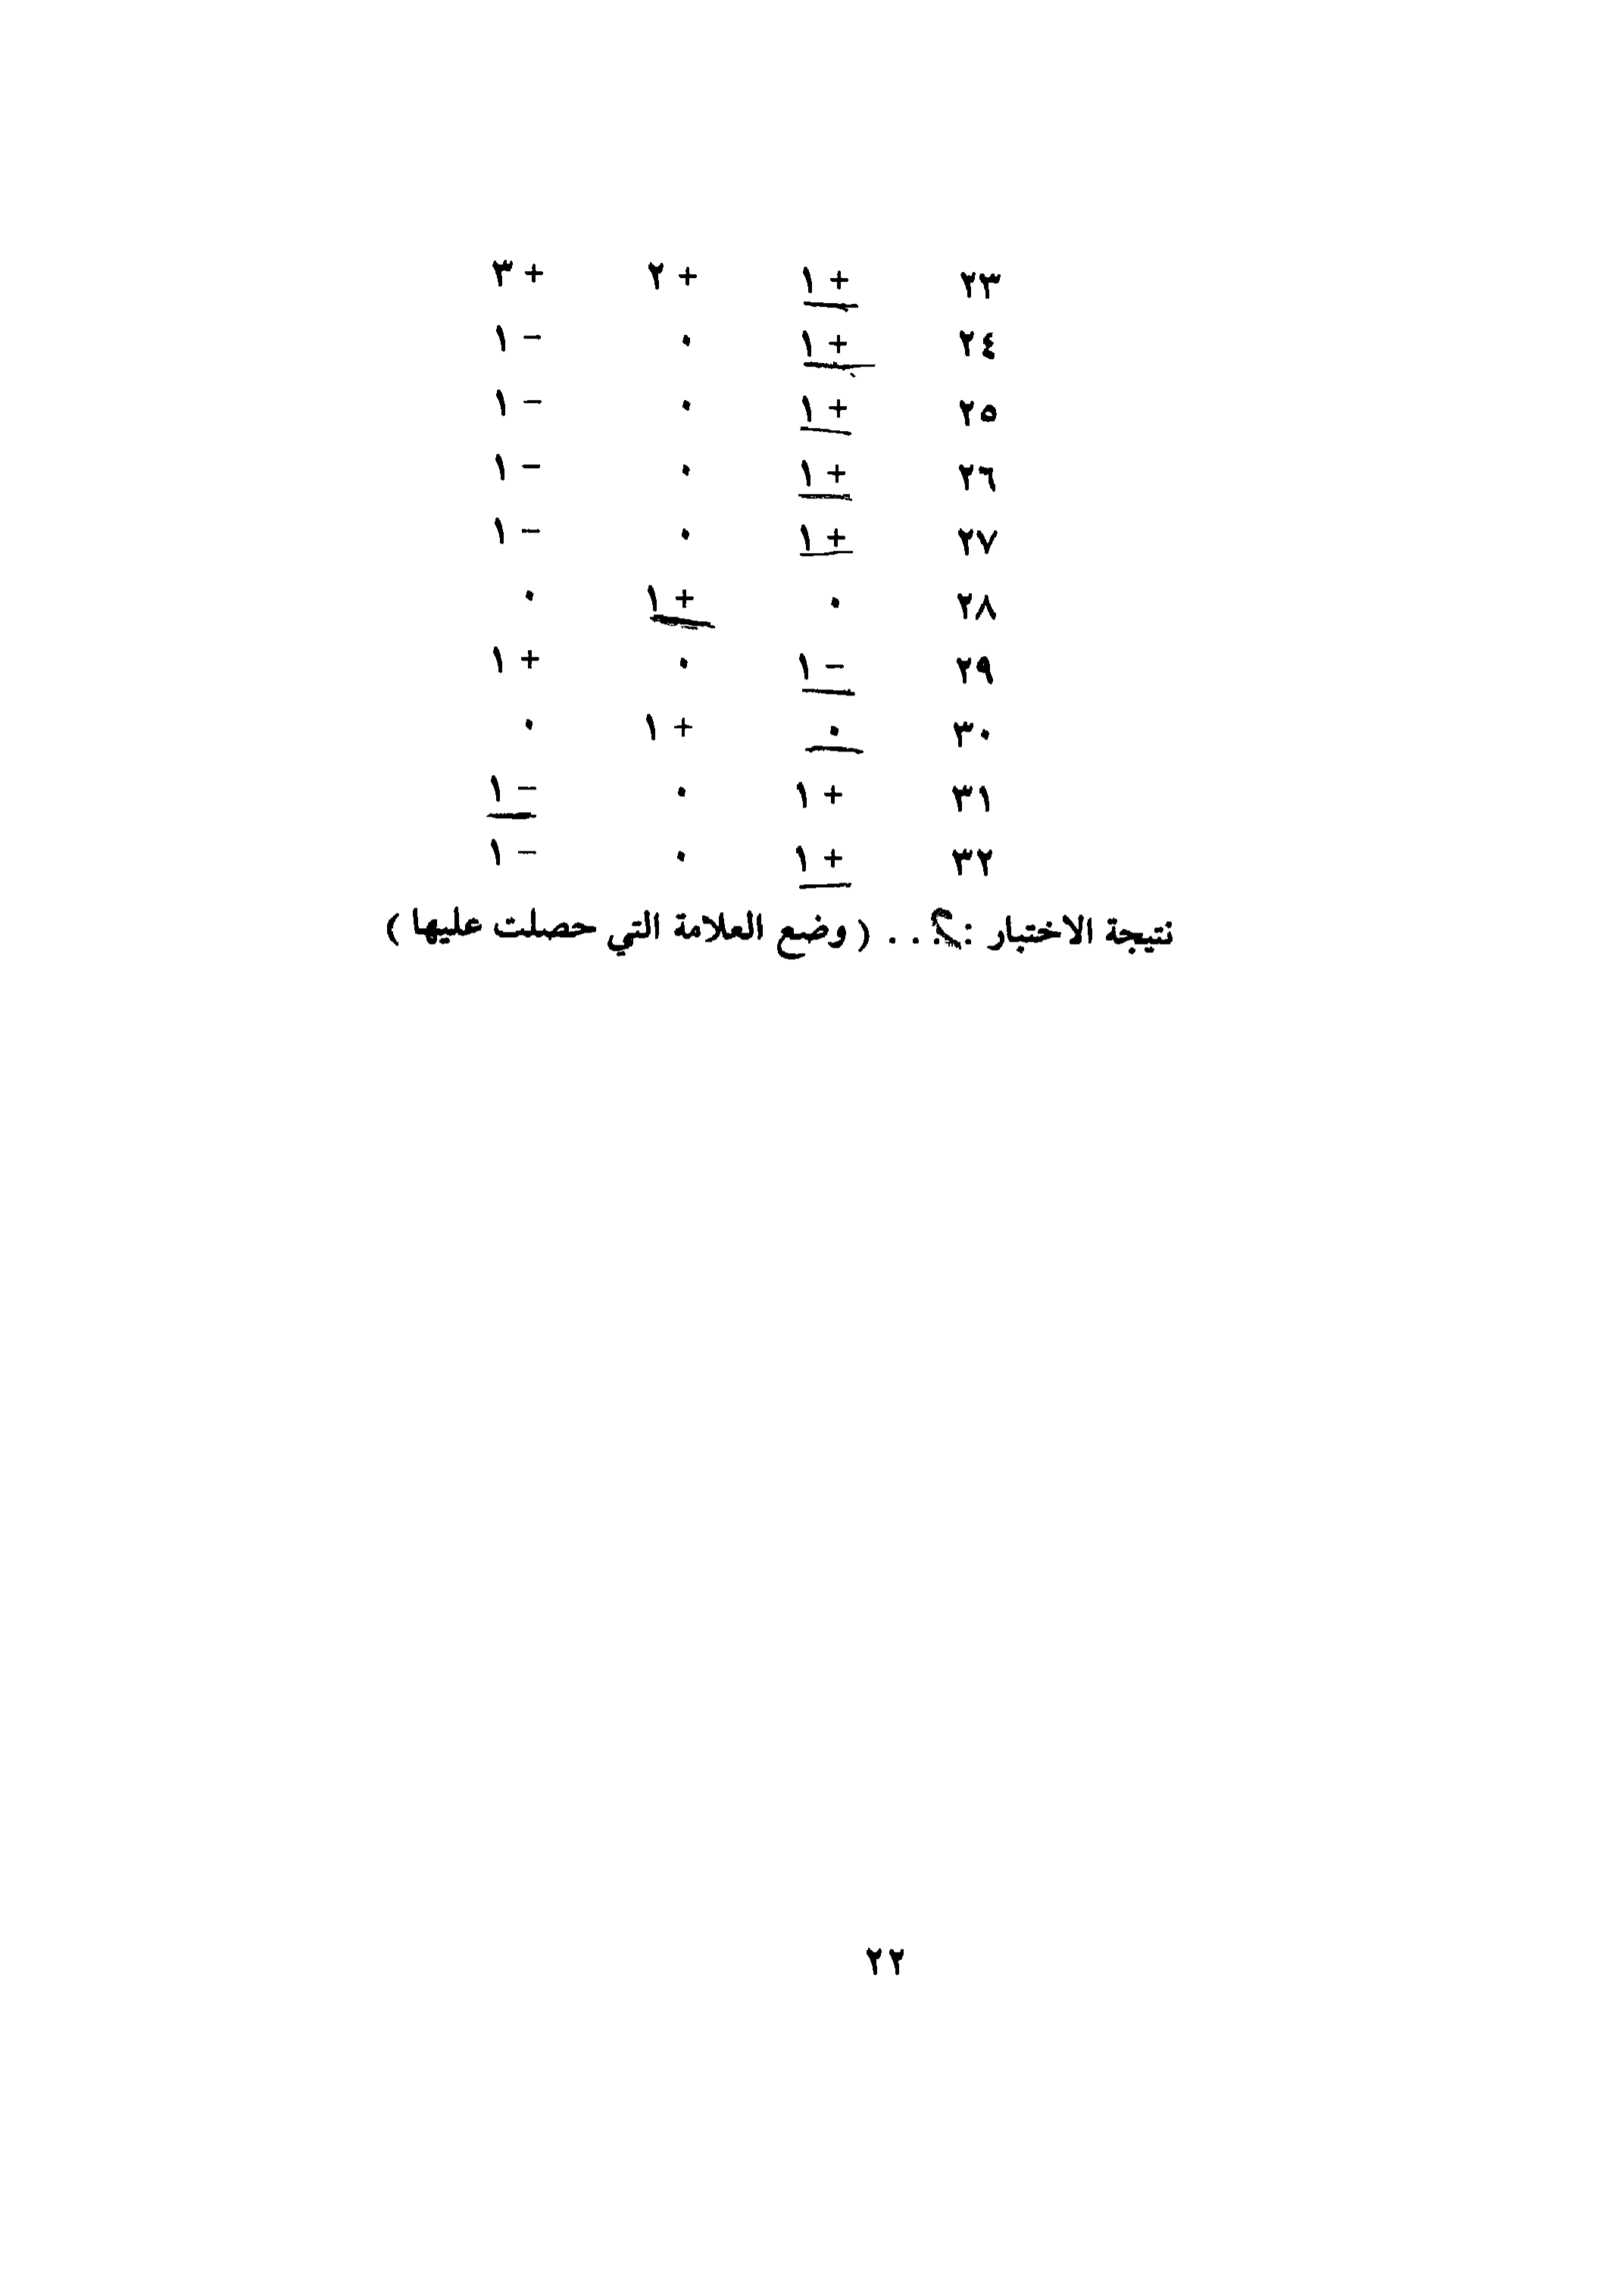 ٢٣ + ١ + ٢ + ٣
٢٤ + ١ ٠ − ١
٢٥ + ١ ٠ − ١
٢٦ + ١ ٠ − ١
٢٧ + ١ ٠ − ١
٢٨ ٠ + ١ ٠
٢٩ − ١ ٠ + ١
٣٠ ٠ + ١ ٠
٣١ + ١ ٠ − ١
٣٢ + ١ ٠ − ١
نتيجة الاختبار : . . . ( وضع العلامة التي حصلت عليها )
٢٢